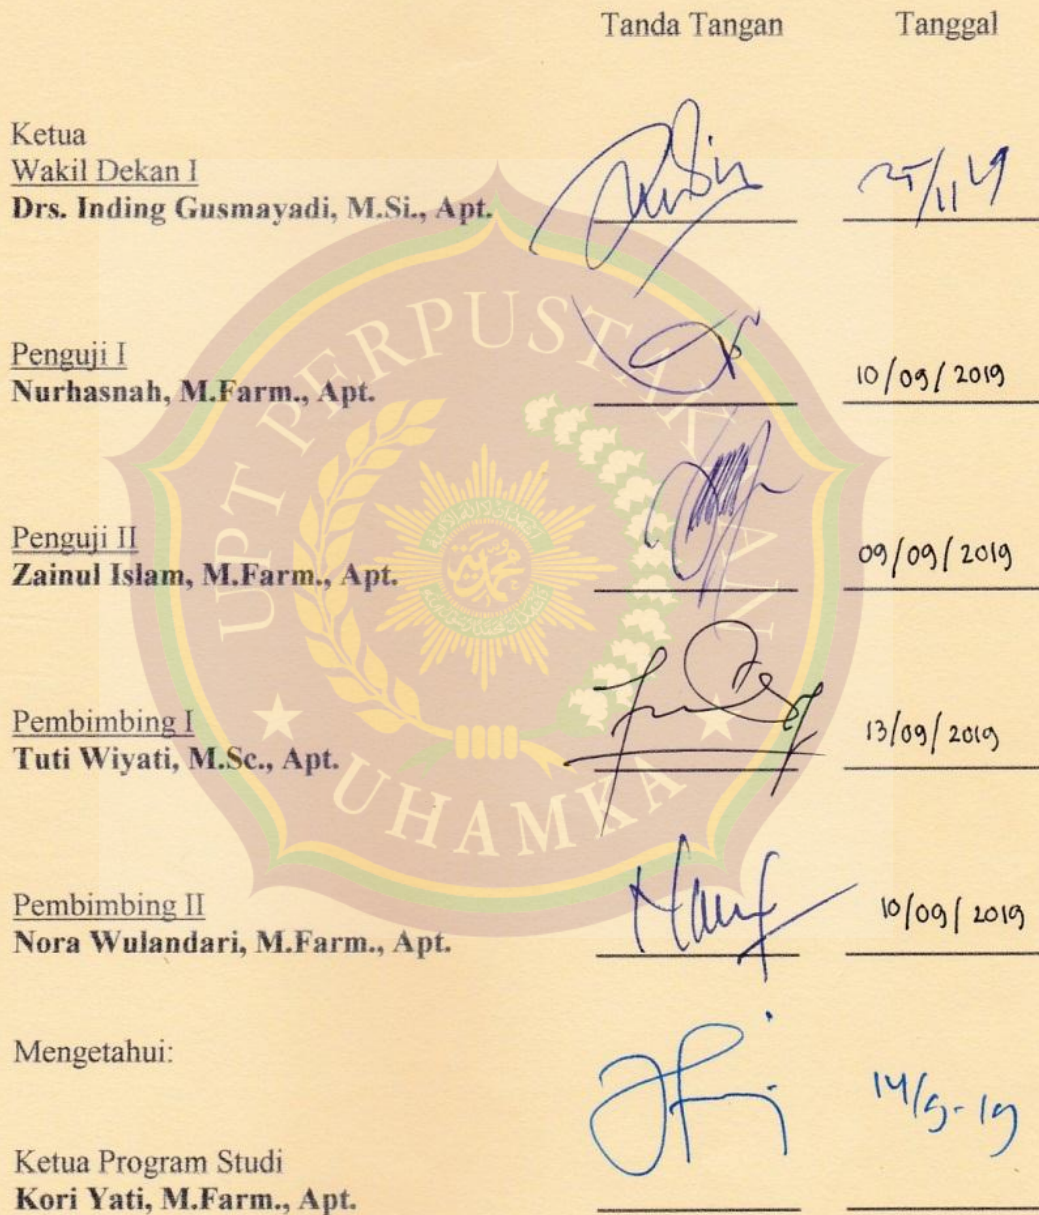 Tanda Tangan Tanggal
Ketua
Wakil Dekan I
Drs. Inding Gusmayadi, M.Si., Apt. 25/11 19
Penguji I
Nurhasnah, M.Farm., Apt. 10/09/2019
Penguji II
Zainul Islam, M.Farm., Apt. 09/09/2019
Pembimbing I
Tuti Wiyati, M.Sc., Apt. 13/09/2019
Pembimbing II
Nora Wulandari, M.Farm., Apt. 10/09/2019
Mengetahui:
Ketua Program Studi
Kori Yati, M.Farm., Apt. 14/9-19
UPT PERPUSTAKAAN
UHAMKA